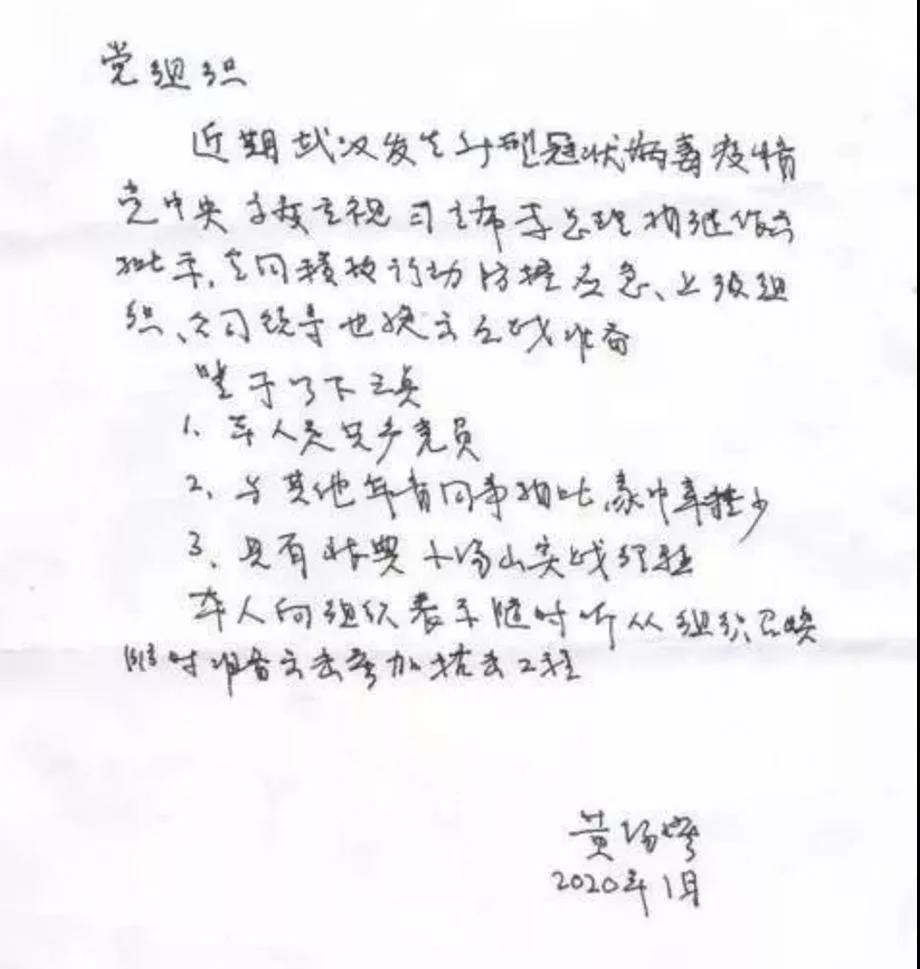 党组织
近期武汉发生新型冠状病毒疫情
党中央高度重视习主席李总理相继作出
批示,全国积极行动防控应急、上级组
织、公司领导也做出应战准备
鉴于以下三点
1、本人是老党员
2、与其他年青同事相比,家中牵挂少
3、具有 小汤山实战经验
本人向组织表示随时听从组织召唤
随时准备出去参加抗击工程
黄
2020年1月